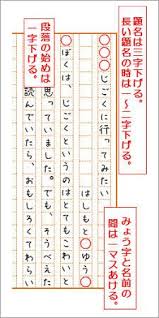 題名は三字下げる。
長い題名の時は一～二字下げる。
みょう字と名前の
間は一マスあける。
○○○じごくに行ってみたい
はしもと○ゆう○
○ぼくは、じごくというのはとてもこわいと
思っていました。でも、そうべえた
読んでいたら、おもしろくてわらい
段落の始めは
一字下げる。